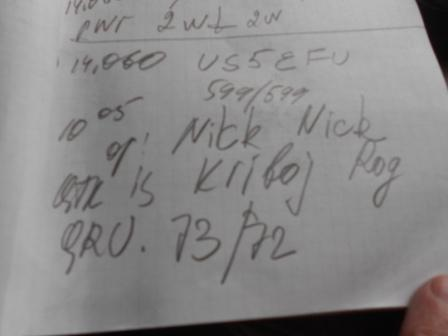 14,0
PWR 2W 2W
14,060 US5EFU
599/599
10 05
op: Nitk Nick
QTH is Krivoj Rog
QRU. 73/72